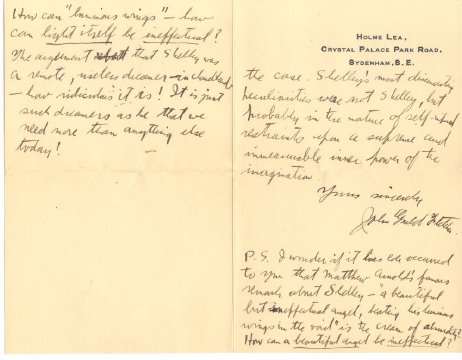 HOLME LEA,
CRYSTAL PALACE PARK ROAD.
SYDENHAM, S.E.
the case. Shelley's most disconcerting
peculiarities were not Shelley, but
probably in the nature of self-imposed
restraints upon a supreme and
immeasurable inner power of the
imagination.
Yours sincerely
John Gould Fletcher
P.S. I wonder if it has ever occurred
to you that Matthew Arnold's famous
remark about Shelley - "a beautiful
but ineffectual angel, beating his luminous
wings in the void" is the cream of absurdity?
How can a beautiful angel be ineffectual?
How can "luminous wings" - how
can light itself be ineffectual?
The argument that Shelley was
a remote, useless dreamer - in cloudland -
- how ridiculous it is! It is just
such dreamers as he that we
need more than anything else
today!